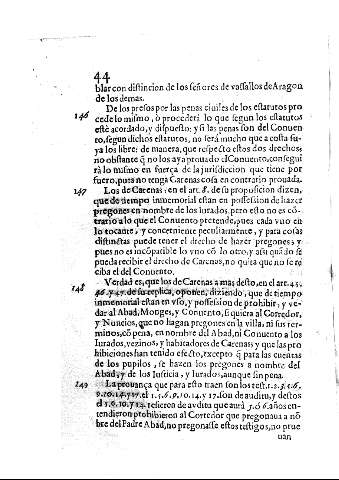 44
blar con distincion de los señores de vassallos de Aragon
de los demas.
146 De los presos por las penas ciuiles de los estatutos pro
cede lo mismo, ò procederá lo que segun los estatutos
estè acordado, y dispuesto; y si las penas son del Conuen
to, segun dichos estatutos, no serà mucho que a costa su
ya los libre: de manera, que respecto estos dos drechos,
no obstante q̃ no los aya prouado el Conuento, consegui
rà lo mismo en fuerça de la jurisdiccion que tiene por
fuero, pues no tenga Carenas cosa en contrario prouada.
147 Los de Carenas, en el art. 8. de su proposicion dizen,
que de tiempo inmemorial estan en possession de hazer
pregones en nombre de los Iurados, pero esto no es cõ-
trario a lo que el Conuento pretende, pues cada vno en
lo tocante, y concerniente peculiarmente, y para cosas
distinctas puede tener el drecho de hazer pregones, y
pues no es incõpatible lo vno cõ lo otro, y assi quãdo se
pueda recibir el drecho de Carenas, no quita que no se re
ciba el del Conuento.
148 Verdad es, que los de Carenas a mas desto, en el art. 45.
46. y 47. de su replica, oponen, diziendo, que de tiempo
inmemorial estan en vso, y possession de prohibir, y ve-
dar al Abad, Monges, y Conuento, si quiera al Corredor,
y Nuncios, que no hagan pregones en la villa, ni sus ter-
minos, cõ pena, en nombre del Abad, ni Conuento a los
Iurados, vezinos, y habitadores de Carenas y que las pro
hibiciones han tenido efecto, excepto q̃ para las cuentas
de los pupilos, se hazen los pregones a nombre del
Abad, y de los Iusticia, y Iurados, aunque sin pena.
149 La prouança que para esto traen son los test. 1. 2. 3. 5. 6.
9. 10. 14. y 17. el 1. 5. 6. 9. 10. 14. y 17. son de audito, y destos
el 5. 9. 10. y 14. refieren de audito que aurà 5. ò 6. años en-
tendieron prohibieron al Corredor que pregonaua a nõ
bre del Padre Abad, no pregonasse estos testigos, no prue
uan